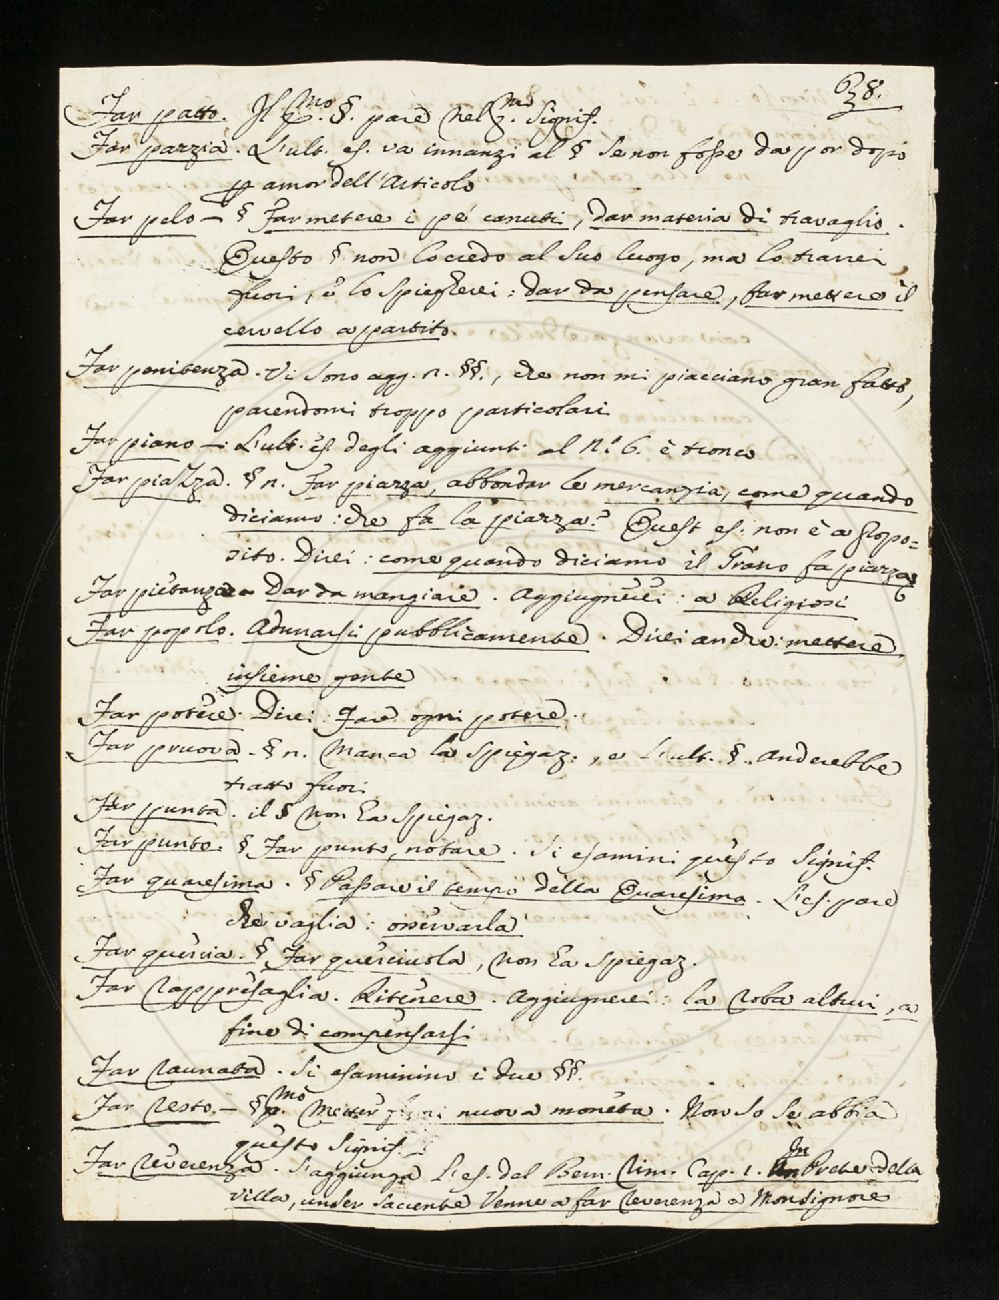 38.
Far patto. Il 2.mo §. pare nel 3.mo signif.
Far pazzia. L'ult. es. va innanzi al § se non fosse da por dopo
p amor dell'Articolo
Far pelo — § Far metere i pei canuti, dar materia di travaglio.
Questo § non lo credo al suo luogo, ma lo trarrei
fuori, e lo spiegherei: dar da pensare, far mettere il
cervello a partito.
Far penitenza. Vi sono agg. n. §§., che non mi piacciano gran fatto,
parendomi troppo particolari
Far piano —: L'ult. es. degli aggiunti al N.º 6. è tronco
Far piazza. § n. Far piazza, abbondar le mercanzia, come quando
diciamo: che fa la piazza? Quest es. non è a propo-
sito. Direi: come quando diciamo il Grano fa piazza
Far pietanza — Dar da mangiare. Aggiugnerei: a Religiosi
Far popolo. Adunarsi pubblicamente. Direi anche: mettere
insieme gente
Far potere. Direi: Fare ogni potere.
Far pruova. § n. Manca la spiegaz., e l'ult. §. anderebbe
tratto fuori
Far punta. il § non ha spiegaz.
Far punto. § Far punto, notare. Si esamini questo signif.
Far quaresima. § Passare il tempo della Quaresima. L'es. pare
che vaglia: osservarla
Far quercia. § Far querciuola, non ha spiegaz.
Far rappresaglia. Ritenere. Aggiugnerei: la roba altrui, a
fine di compensarsi
Far raunata. Si esaminino i due §§.
Far resto. — § p.mo Metter nuova moneta. Non so se abbia
questo signif.
Far reverenza. S'aggiunga l'es. del Bern. Rim. Cap. 1. Un Prete della
villa, un ser saccente Venne a far reverenza a Monsignore